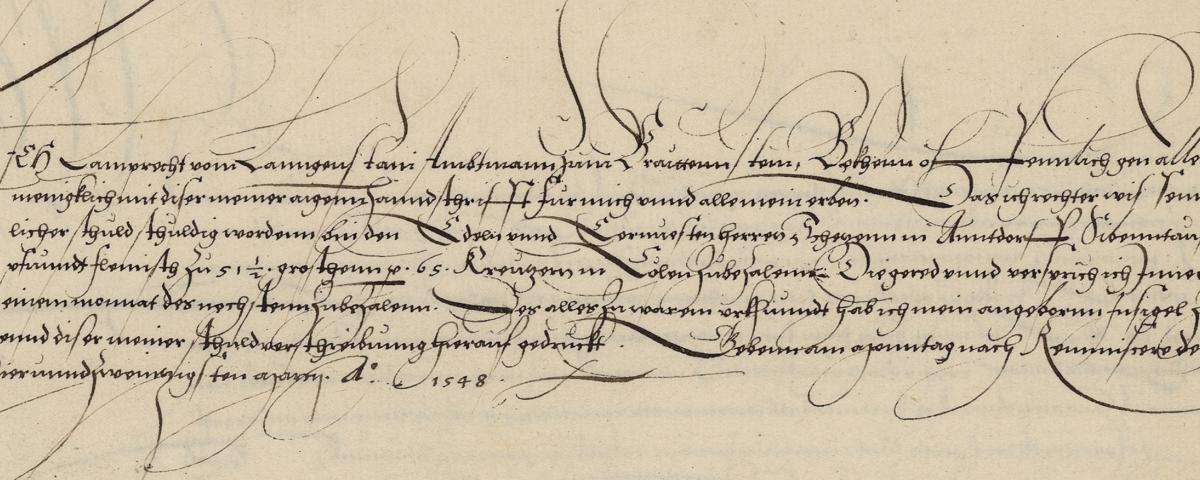 Ich Lamprecht vom Lanngenstain Ambtmann zum Brauttennstein, Bekhenn offennlich gen alle
menigklich mit diser meiner aigenn Hanndtschrifft für mich vnnd alle mein erben. Das ich rechter wis
licher schuld schuldig wordenn bin den Edeln vnnd Ernuesten herren in Anntdorff. Sibenntau
pfundt flemisch zu 51 1/2 groschenn p. 65. Kreutzern in zubezalenn. Die gered vnnd versprich ich Inen
einem monnat des nechstenn zubezalenn. Des alles zu warem vrkhundt hab ich mein angebornn Insigel
ennd diser meiner schuldverschreibung hierauf gedruckt. Gebenn am Sonntag nach Reminiscere de
vierunndzweinzigsten Marcy. A° 1548.